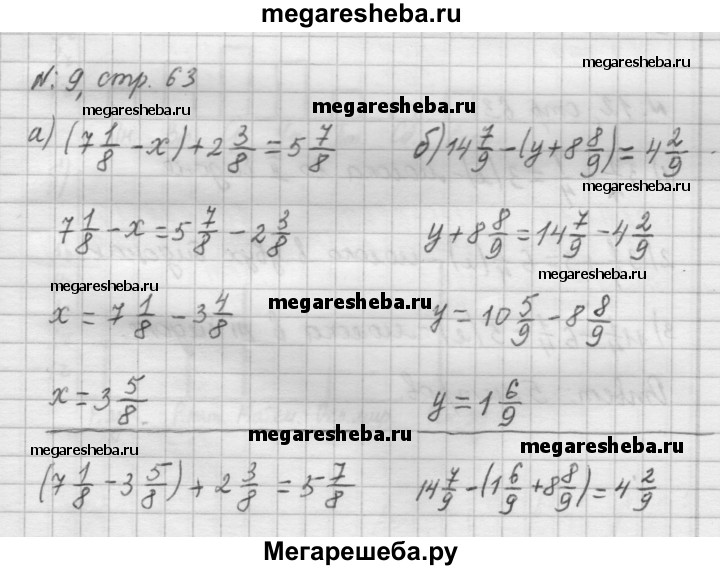 megaresheba.ru
№ 9, стр. 63
megaresheba.ru megaresheba.ru megaresheba.ru
а) (7 1/8 − x) + 2 3/8 = 5 7/8 б) 14 7/9 − (y + 8 8/9) = 4 2/9
megaresheba.ru
7 1/8 − x = 5 7/8 − 2 3/8 y + 8 8/9 = 14 7/9 − 4 2/9
megaresheba.ru megaresheba.ru megaresheba.ru
x = 7 1/8 − 3 4/8 y = 10 5/9 − 8 8/9
x = 3 5/8 y = 1 6/9
megaresheba.ru megaresheba.ru megaresheba.ru
(7 1/8 − 3 5/8) + 2 3/8 = 5 7/8 14 7/9 − (1 6/9 + 8 8/9) = 4 2/9
Мегарешеба.ру